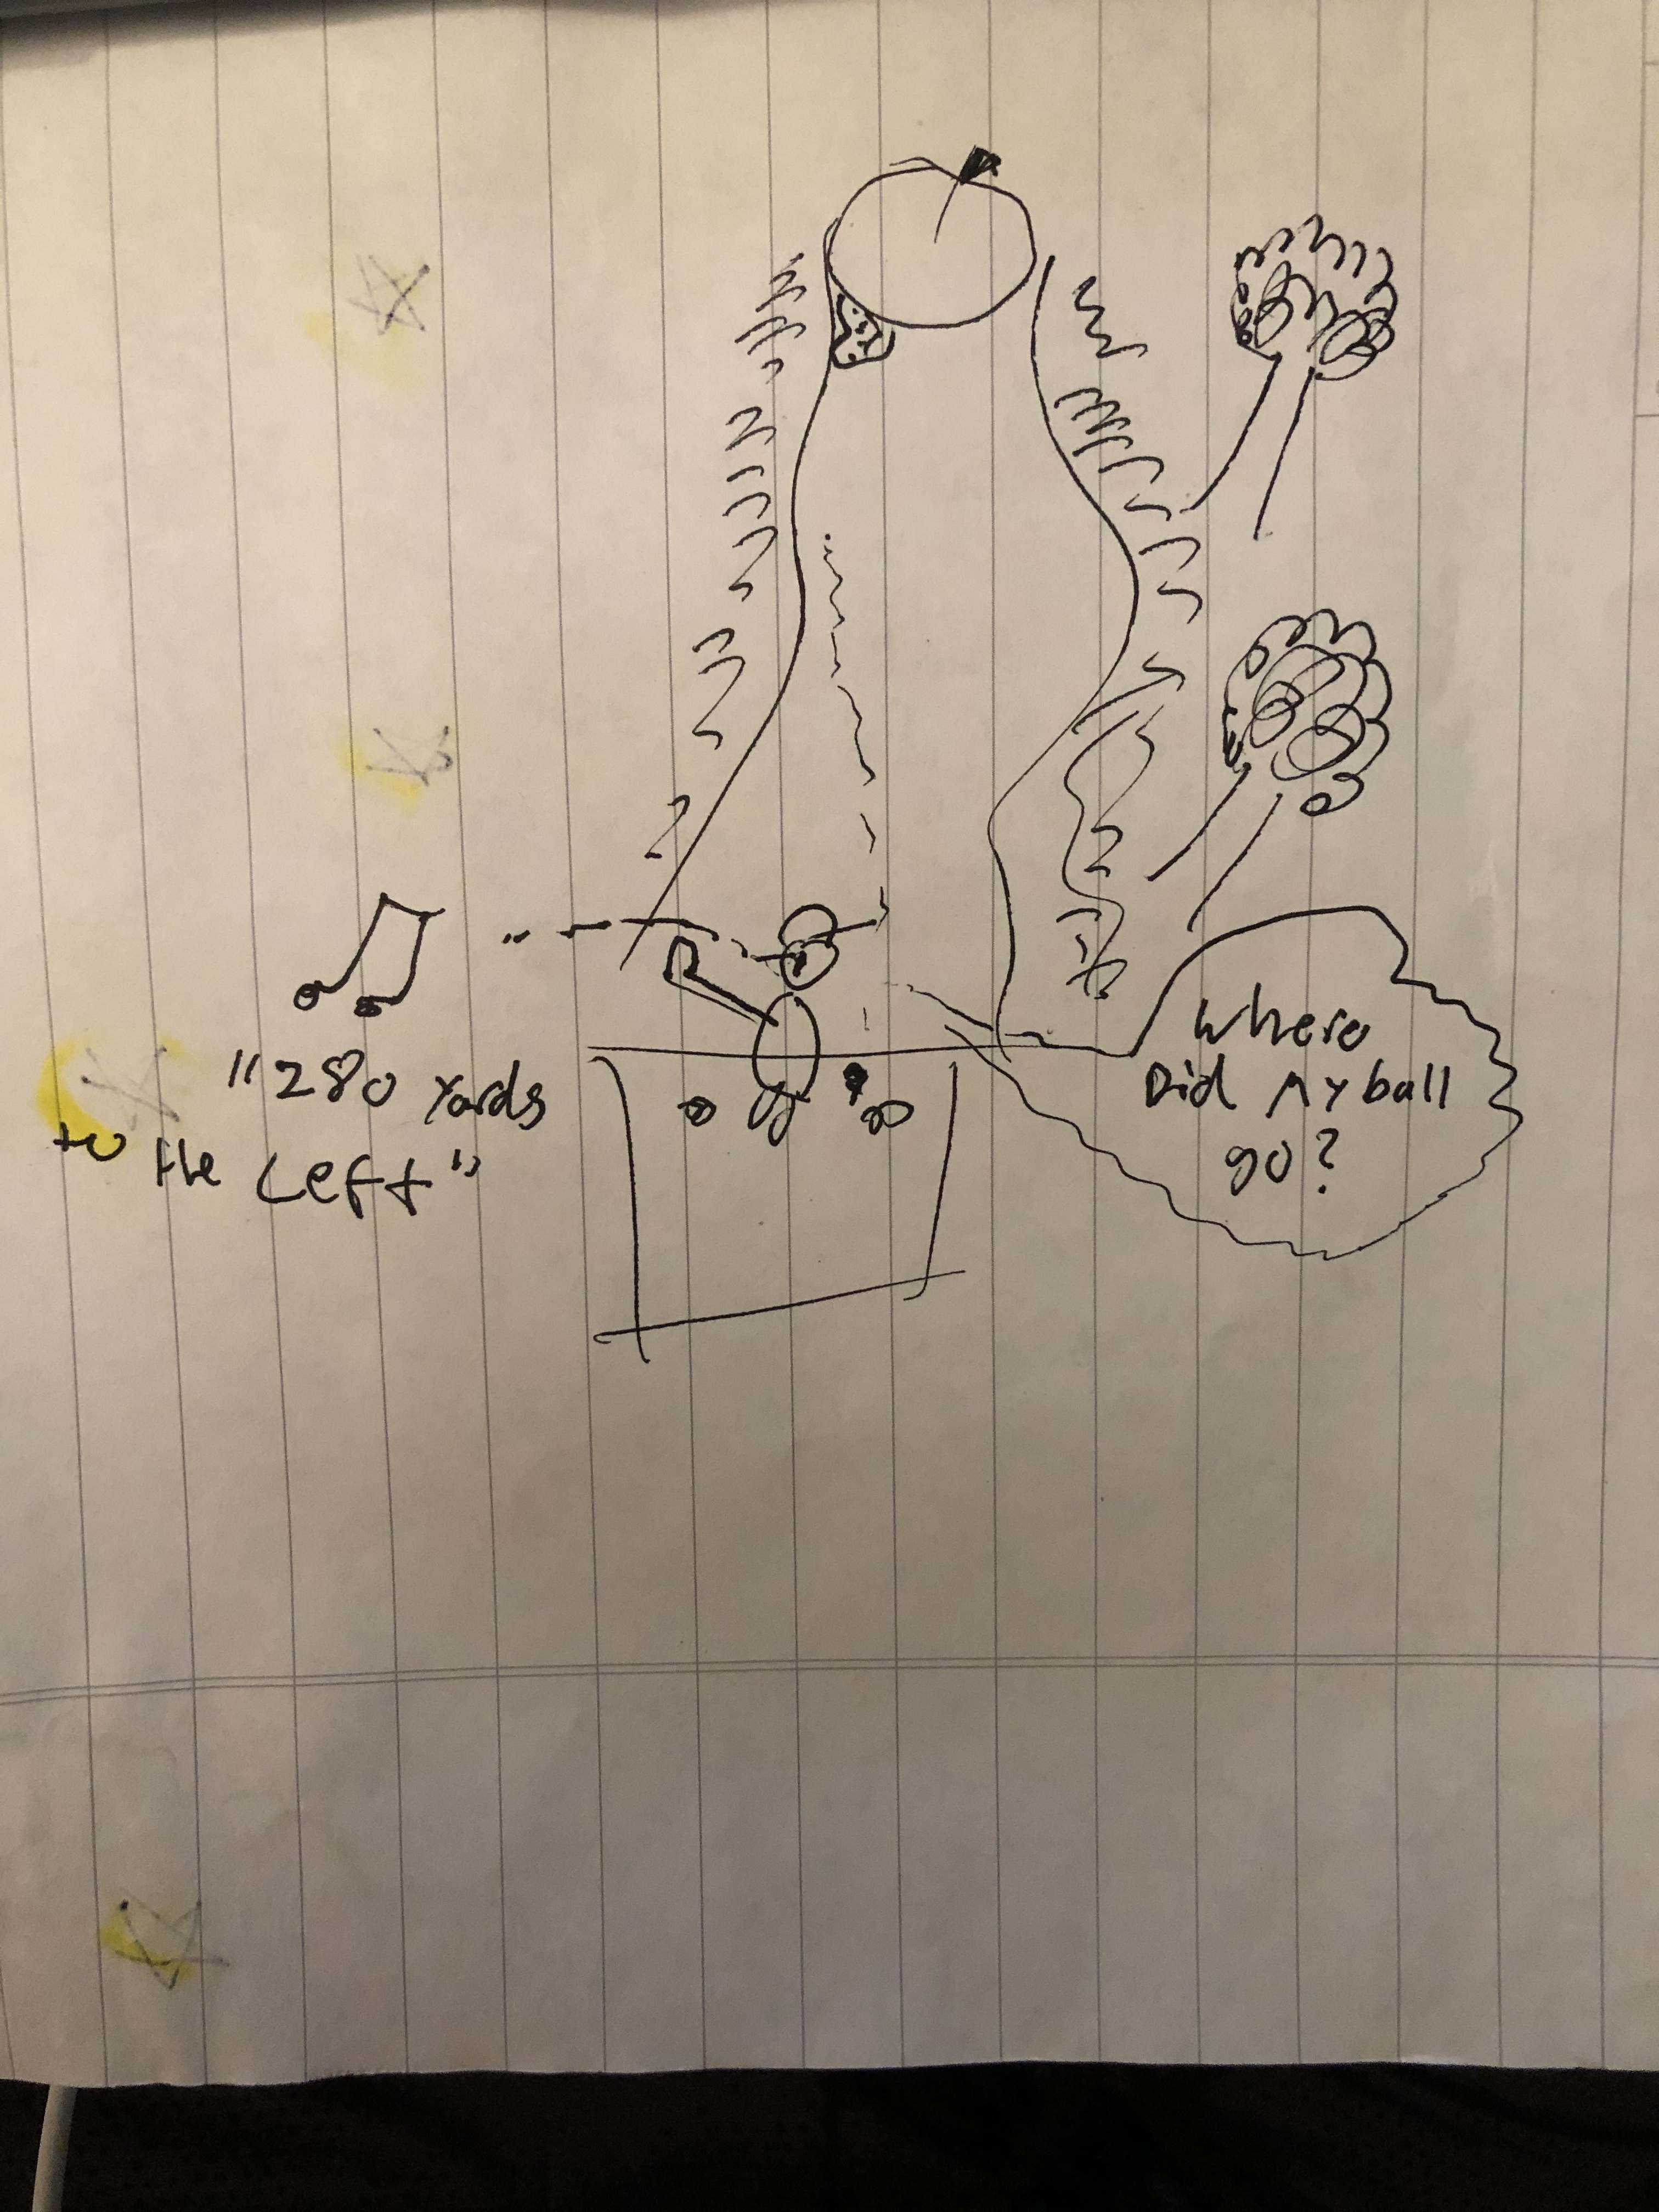 "280 yards
to the Left"
Where
Did My ball
go?